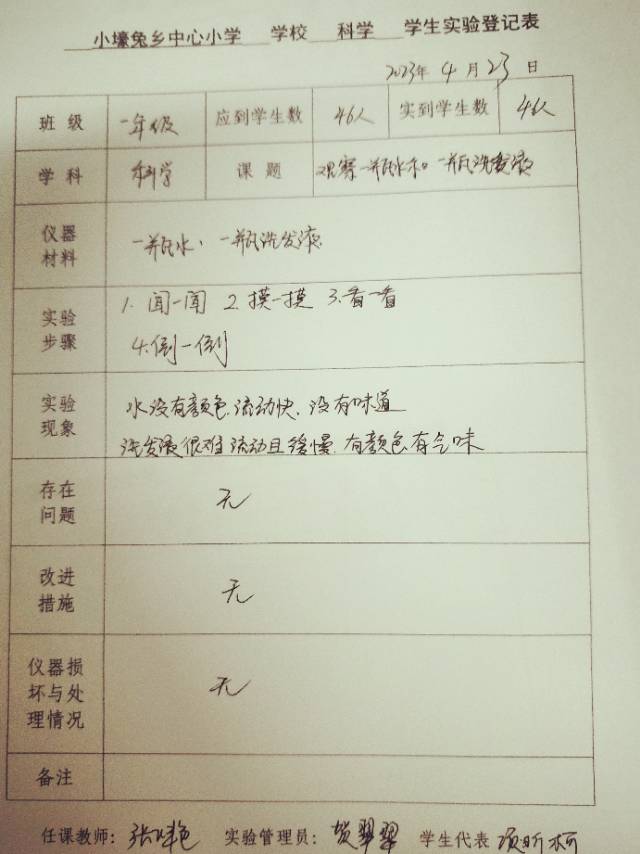 小壕兔乡中心小学 学校 科学 学生实验登记表
2023年 4 月 23 日
班 级 一年级 应到学生数 46人 实到学生数
学 科 科学 课 题 观察一瓶水和一瓶洗发液
仪器 材料 一瓶水、一瓶洗发液
实验 步骤 1. 闻一闻 2. 摸一摸 3. 看一看
4. 倒一倒
实验 现象 水没有颜色.流动快.没有味道
洗发液很难流动且缓慢.有颜色有气味
存在 问题 无
改进 措施 无
仪器损 坏与处 理情况 无
备注
任课教师: 张 艳 实验管理员: 贺翠翠 学生代表 昕柯